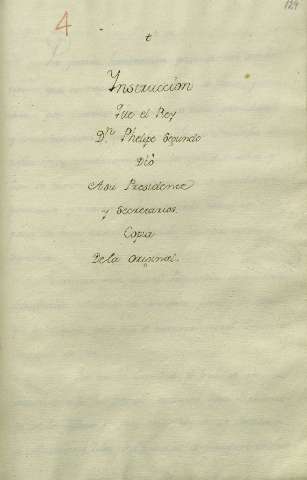 4
129
t
Instruccion
Que el Rey
D.n Phelipe Segundo
Diò
Asu Presidente
y Secretarios.
Copia
Dela original.